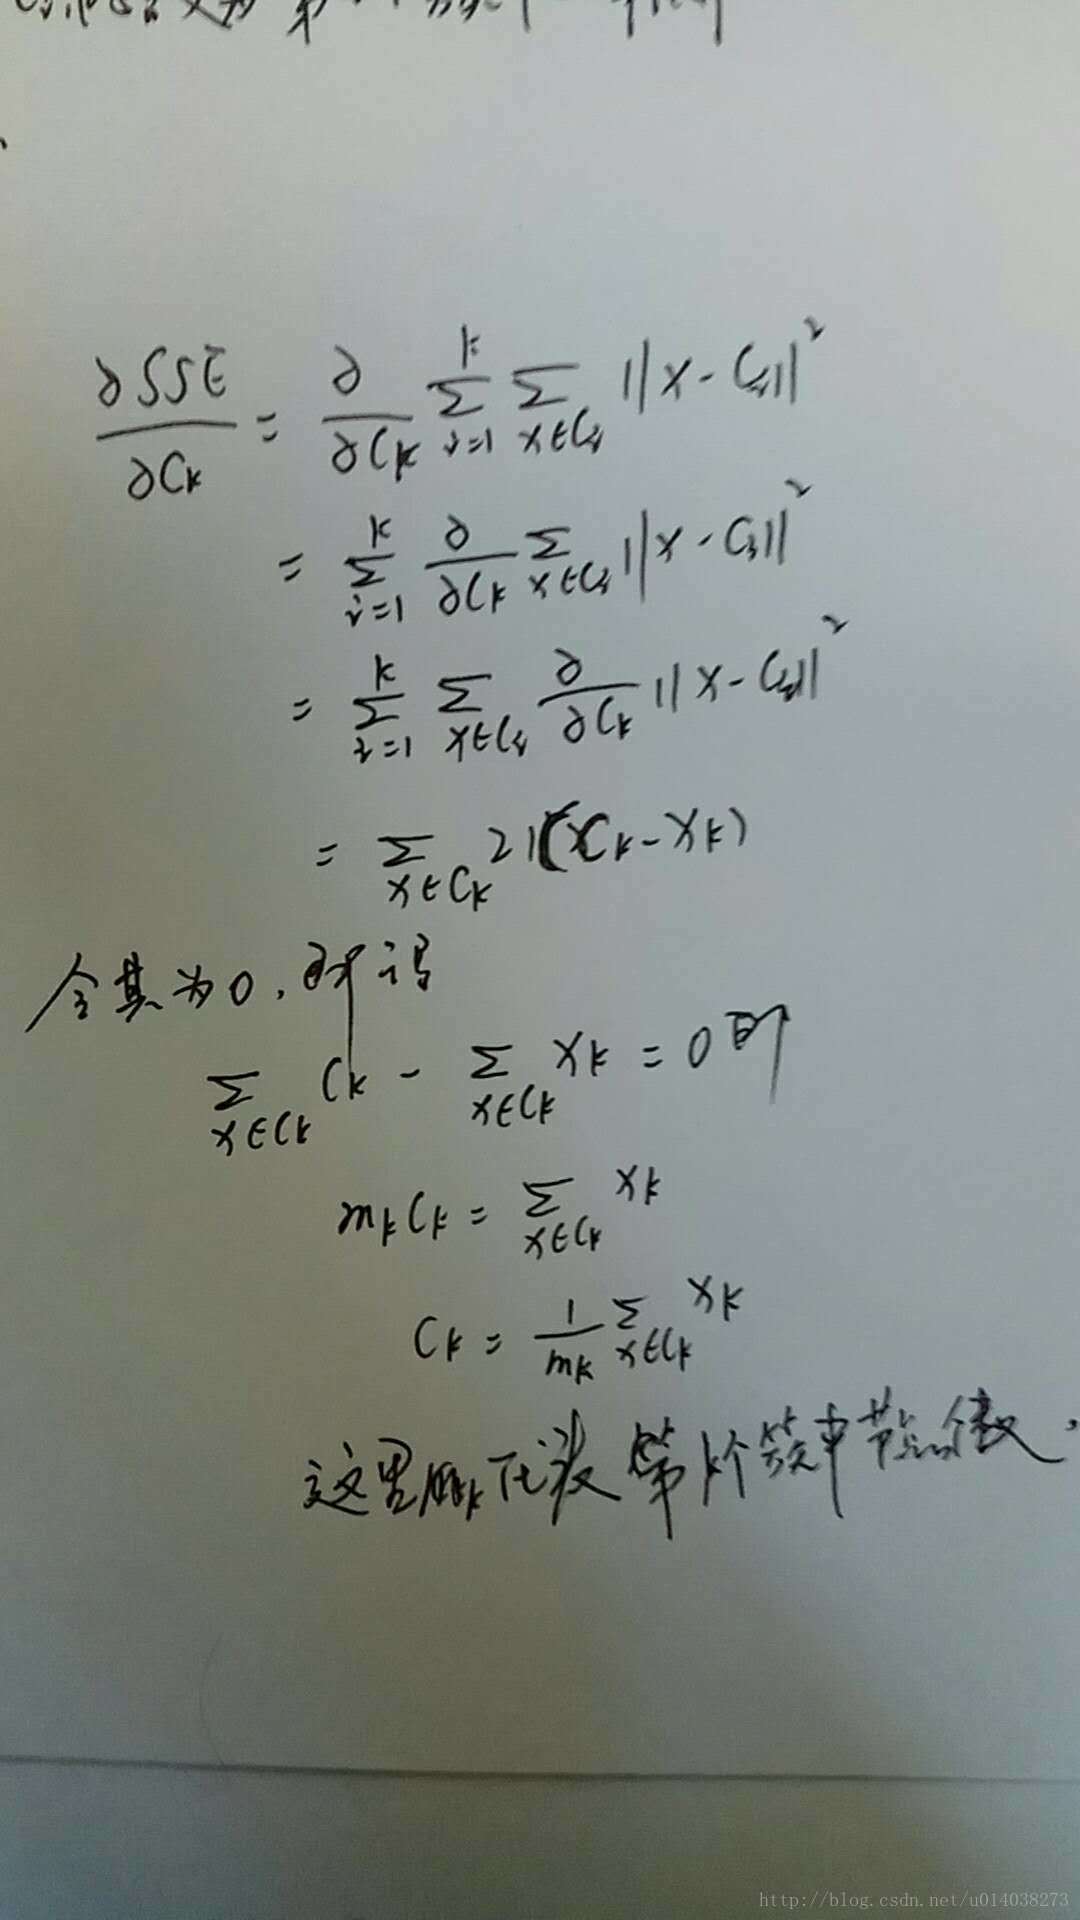 ∂SSE/∂Ck = ∂/∂Ck Σ_{i=1}^{k} Σ_{x∈Ci} ||x - Ci||²
= Σ_{i=1}^{k} ∂/∂Ck Σ_{x∈Ci} ||x - Ci||²
= Σ_{i=1}^{k} Σ_{x∈Ci} ∂/∂Ck ||x - Ci||²
= Σ_{x∈Ck} 2(Ck - xk)
令其为0,可得
Σ_{x∈Ck} Ck - Σ_{x∈Ck} xk = 0 即
mkCk = Σ_{x∈Ck} xk
Ck = 1/mk Σ_{x∈Ck} xk
这里mk代表第k个簇中节点个数.
http://blog.csdn.net/u014038273